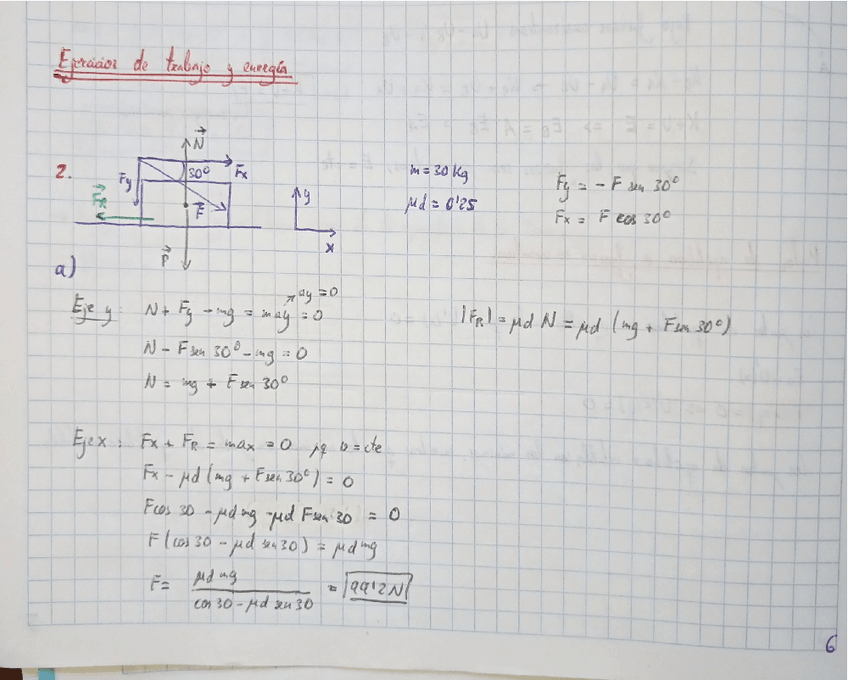 Ejercicios de trabajo y energía
2.
N
30º
Fx
Fy
F
FR
P
y
x
m = 30 Kg
μd = 0'25
Fy = - F sen 30º
Fx = F cos 30º
a)
Eje y: N + Fy - mg = may = 0
ay = 0
N - F sen 30º - mg = 0
N = mg + F sen 30º
|FR| = μd N = μd (mg + F sen 30º)
Eje x: Fx + FR = max = 0 pq v = cte
Fx - μd (mg + F sen 30º) = 0
F cos 30 - μd mg - μd F sen 30 = 0
F (cos 30 - μd sen 30) = μd mg
F = μd mg / cos 30 - μd sen 30 = 99'2 N
6